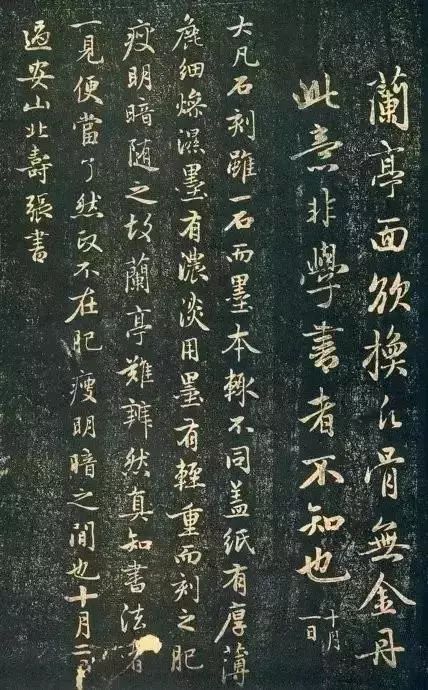 蘭亭面欲換凡骨無金丹
此意非學書者不知也
十月
一日
大凡石刻雖一石而墨本輙不同盖紙有厚薄
麁細燥濕墨有濃淡用墨有輕重而刻之肥
瘦明暗随之故蘭亭難辨然真知書法者
一見便當了然政不在肥瘦明暗之間也十月二
過安山北壽張書